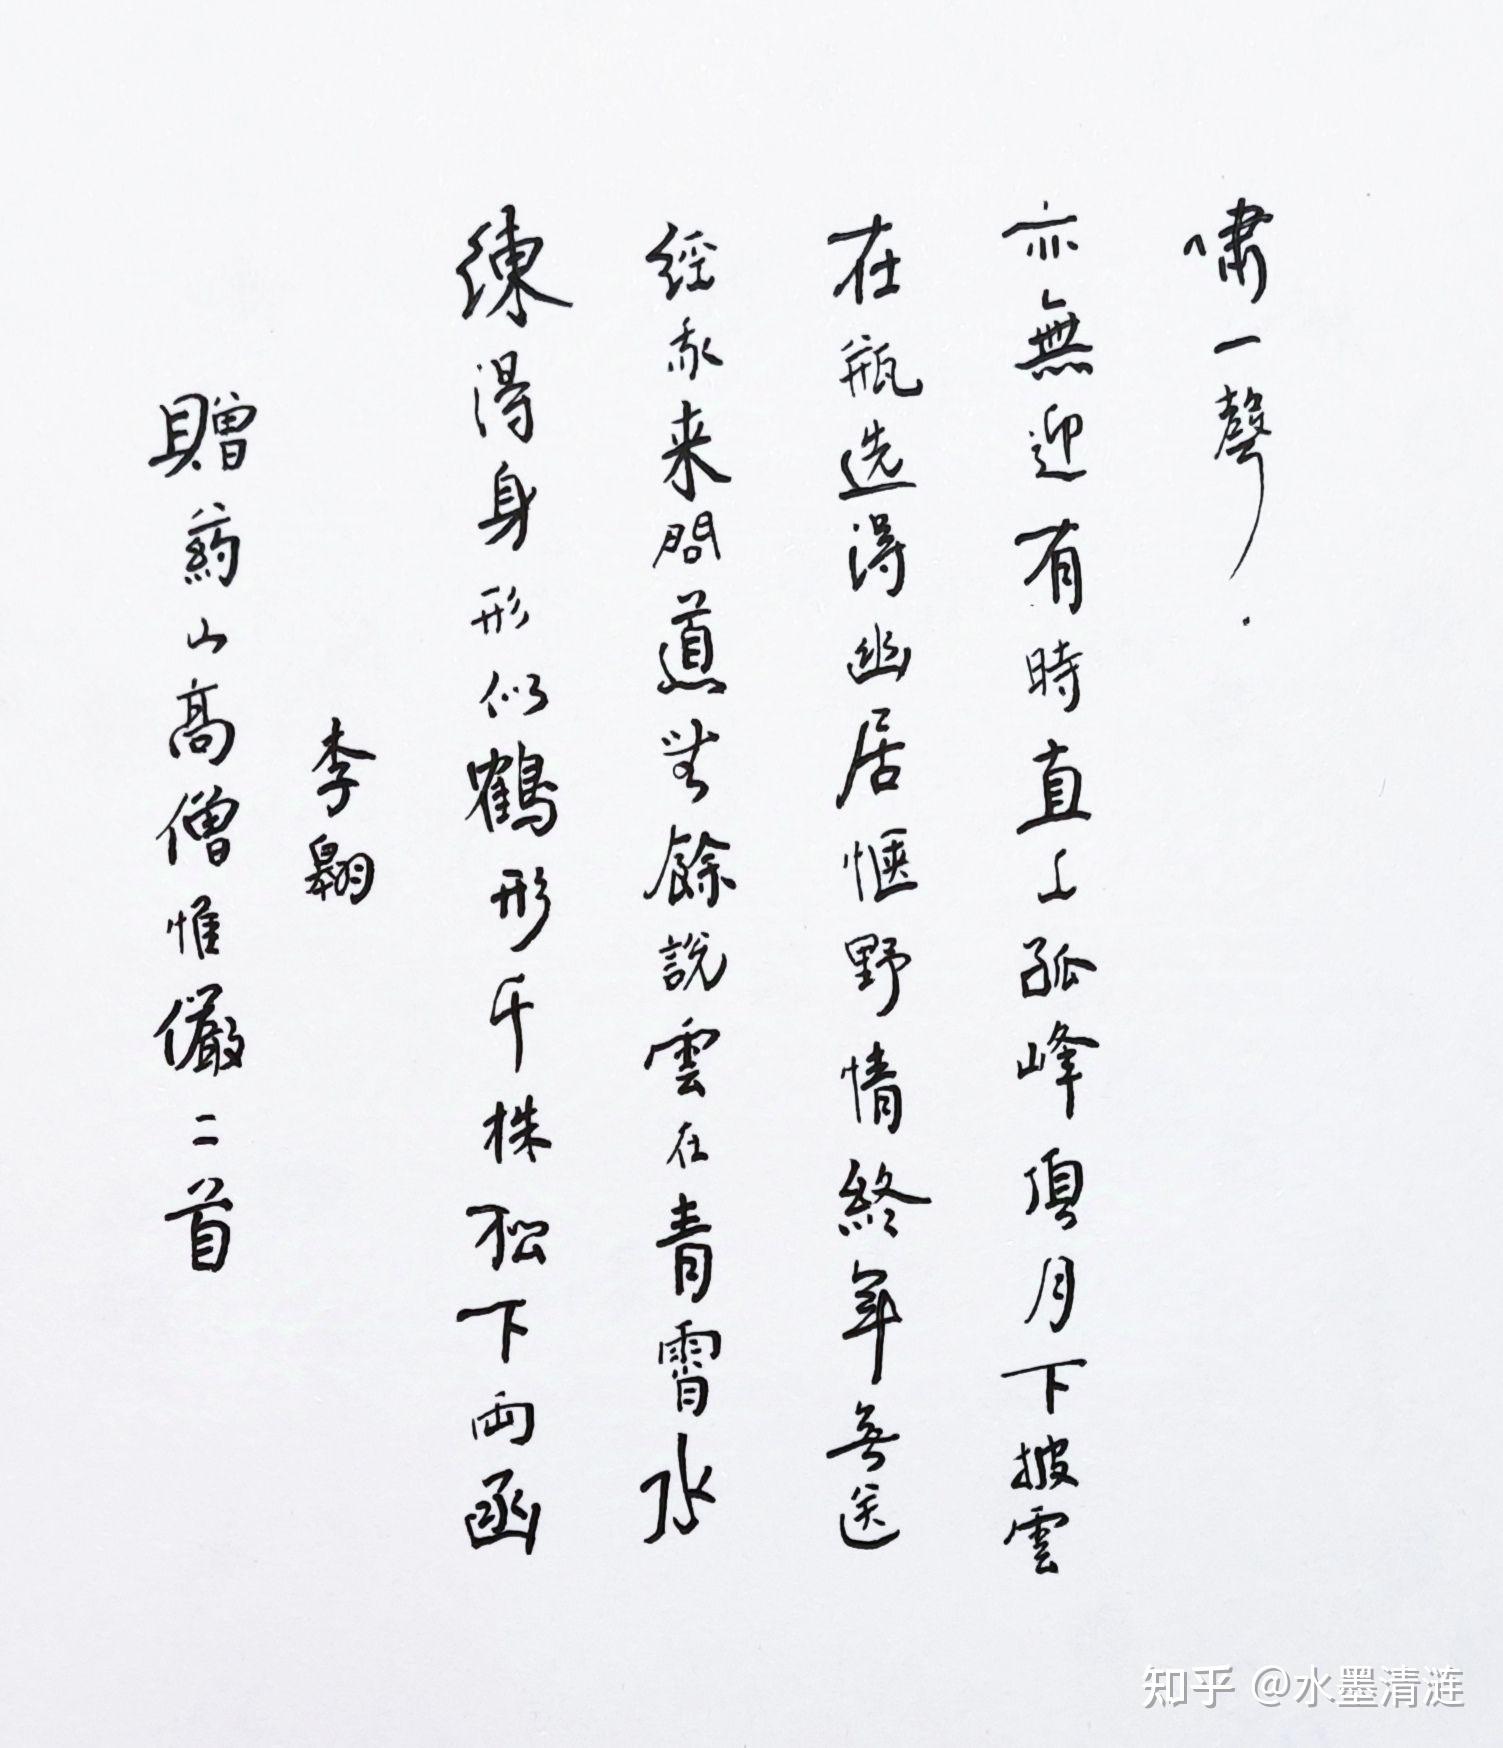 贈葯山高僧惟儼二首
李翱
練得身形似鶴形千株松下两函
經我来問道無餘說雲在青霄水
在瓶选得幽居愜野情終年無送
亦無迎有時直上孤峰頂月下披雲
嘯一聲
知乎 @水墨清涟